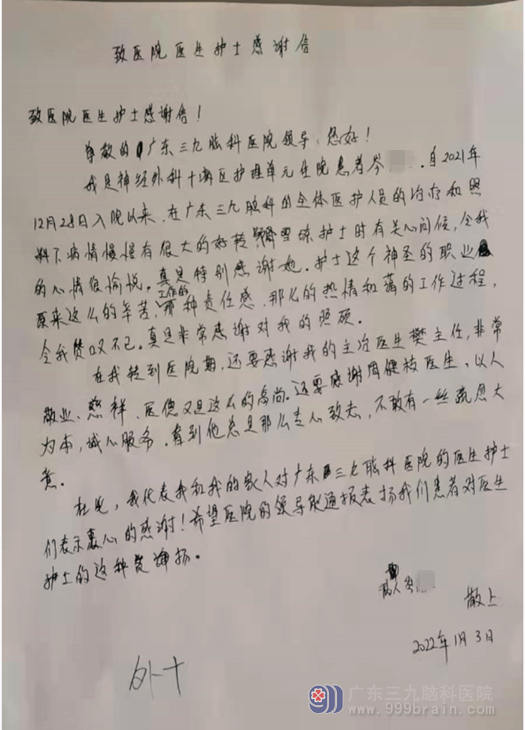 致医院医生护士感谢信
致医院医生护士感谢信!
尊敬的广东三九脑科医院领导:您好!
我是神经外科十病区护理单元住院患者岑 自2021年
12月28日入院以来,在广东三九脑科的全体医护人员的治疗和照
料下病情慢慢有很大的好转 雪琼护士时有关心问候,令我
的心情很愉悦。真是特别感谢她。护士这个神圣的职业
原来这么的辛苦,工作的那种责任感,那么的热情和 的工作过程,
令我赞叹不已。真是非常感谢对我的照顾。
在我转到医院期,还要感谢我的主治医生樊主任,非常
敬业、慈祥、医德又是这么的高尚。还要感谢周健枝医生、以人
为本,诚心服务,看到他总是那么专心致志,不敢有一丝疏忽大
意。
在此,我代表我和我的家人对广东三九脑科医院的医生护士
们表示衷心的感谢!希望医院的领导能通报表扬我们患者对医生
护士的这种 扬。
病人岑
敬上
2022年1月3日
外十
广东三九脑科医院
www.999brain.com